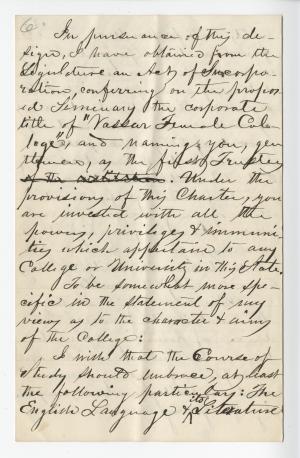 6.
In pursuance of this de-
sign, I have obtained from the
Legislature an Act of Incorpo-
ration, conferring on the propos-
ed Seminary the corporate
title of "Vassar Female Col-
lege", and naming you, gen-
tlemen, as the first Trustees
of the institution. Under the
provisions of this Charter, you
are invested with all the
powers, privileges & immuni-
ties which appertain to any
College or University in this State.
To be somewhat more spe-
cific in the statement of my
views as to the character & aims
of the College:
I wish that the Course of
study should embrace, at least
the following particulars: The
English Language & its Literature